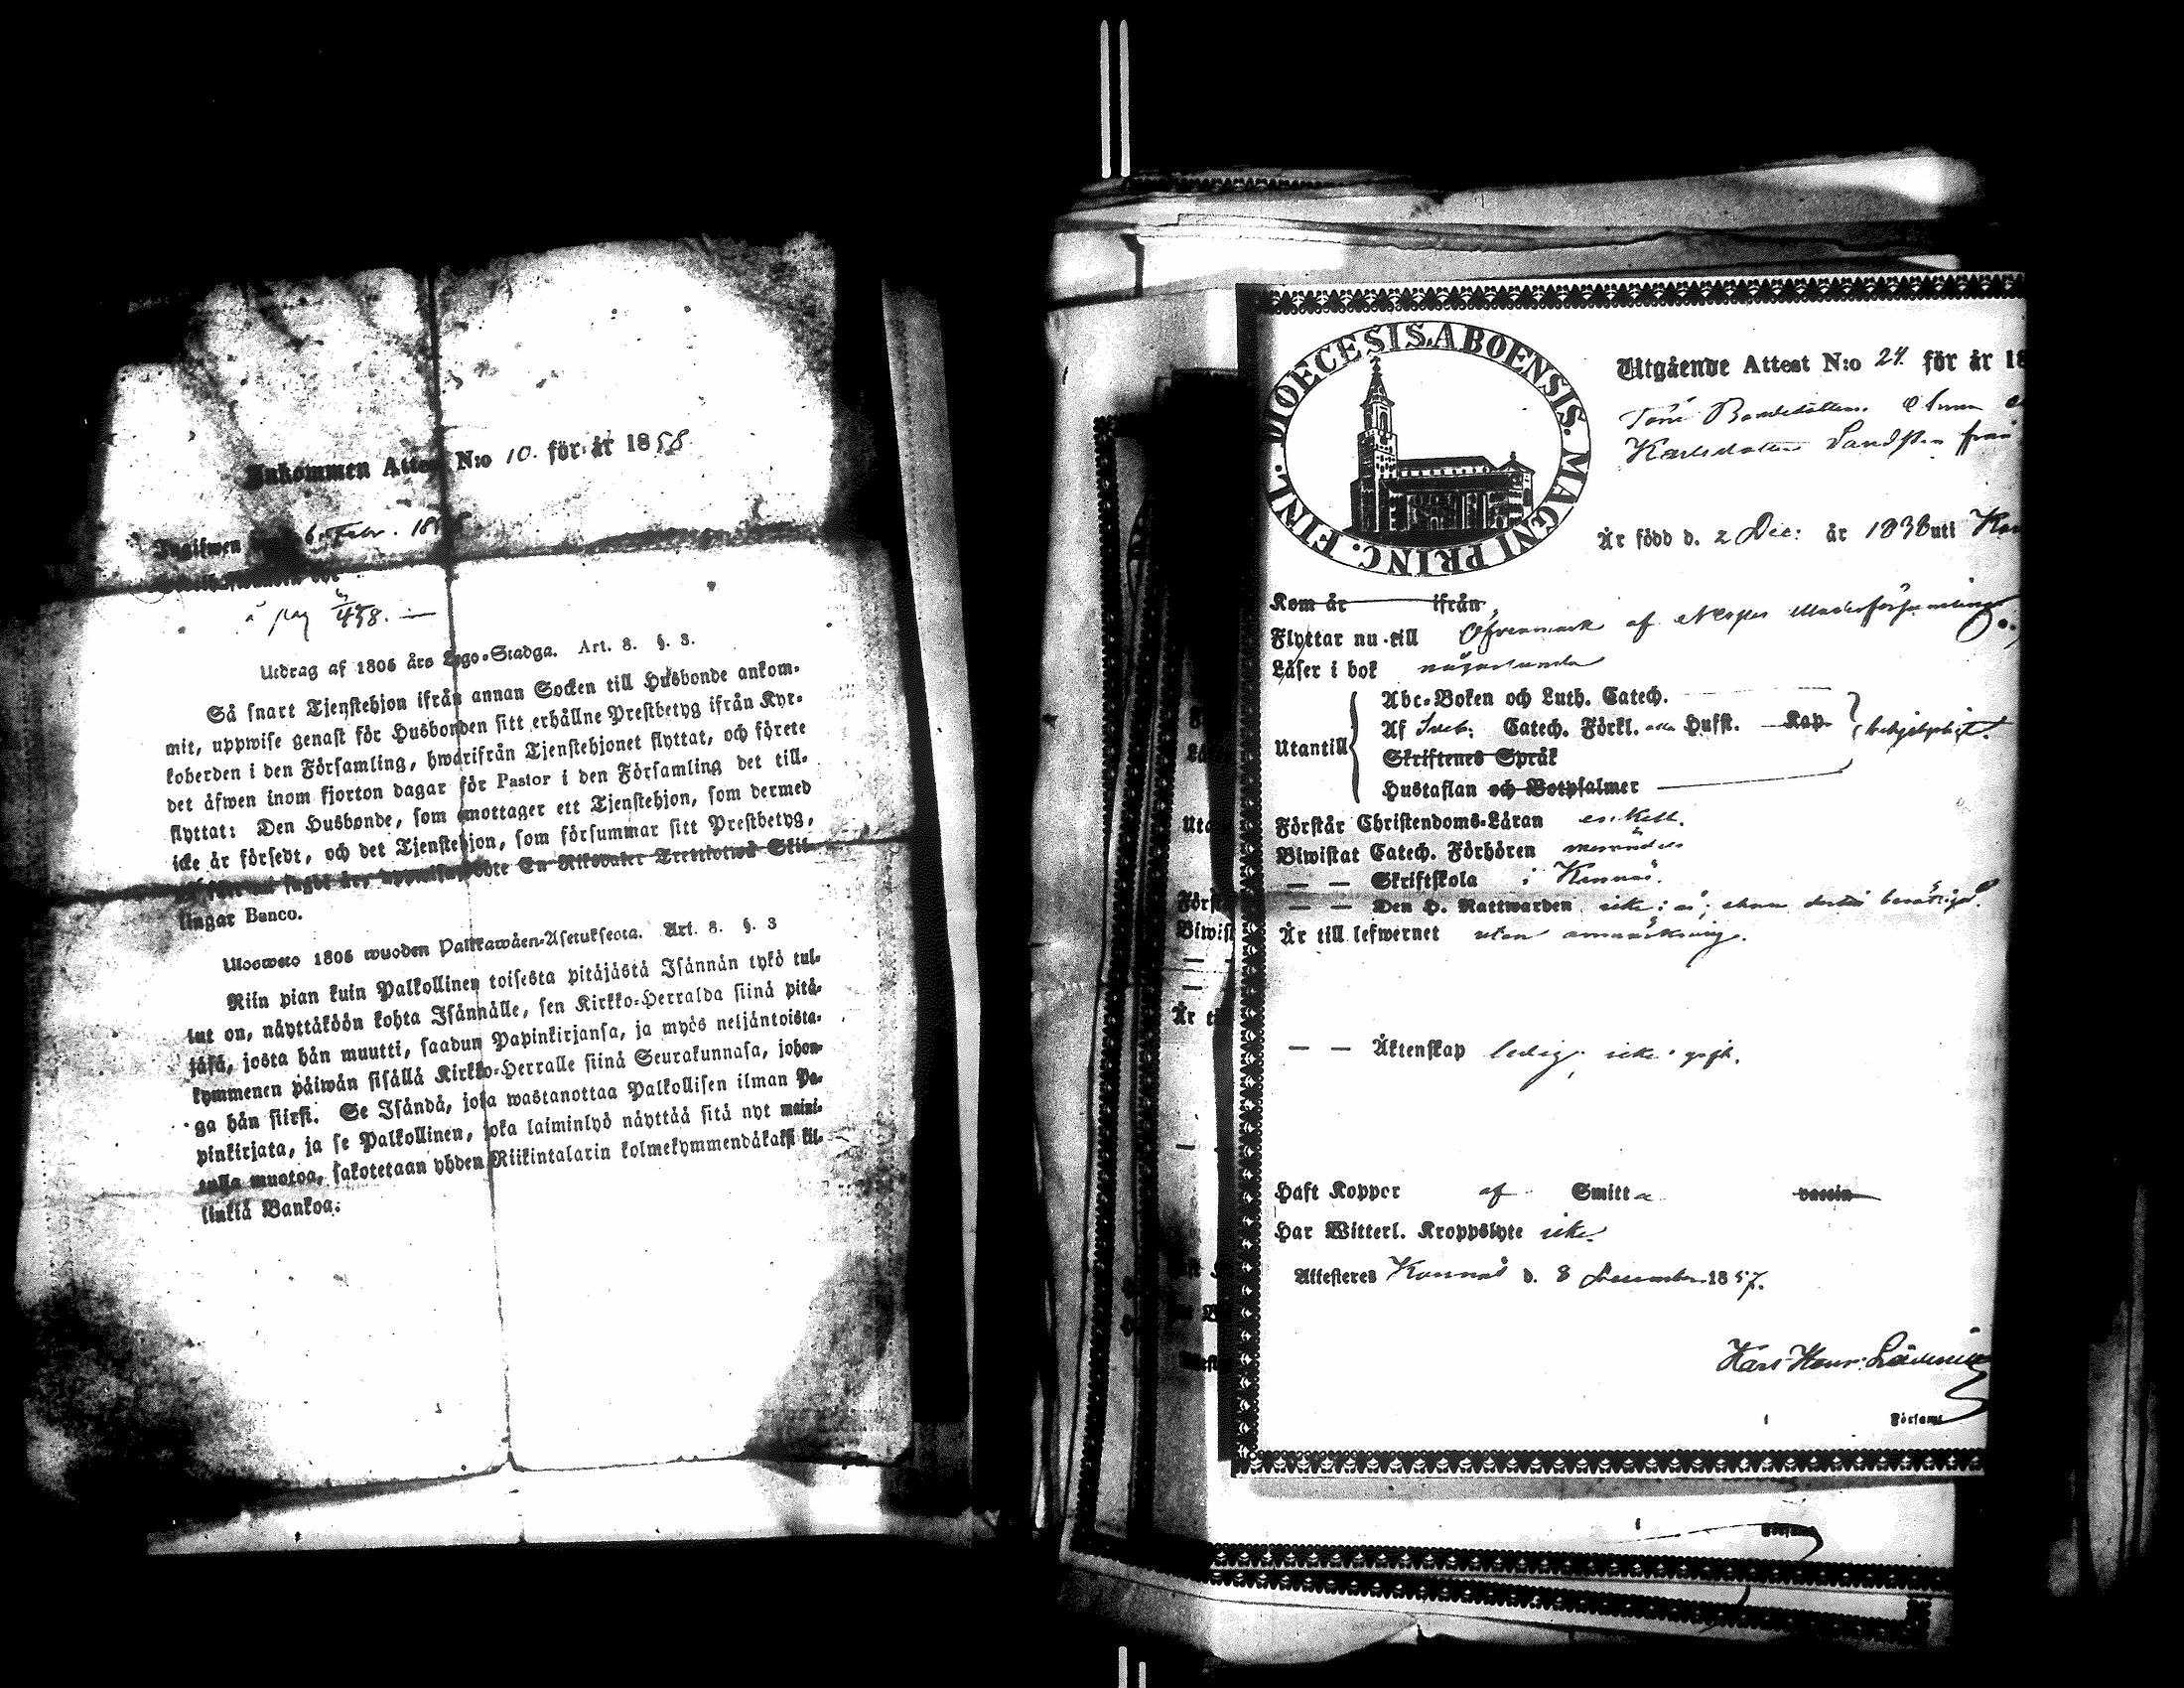 Inkommen Attest N:o 10. för år 1858
Ingifwen den 6. Febr. 185
å pag 458.
Utdrag af 1805 års Lego-Stadga. Art. 8. §. 3.
Så snart Tjenstehjon ifrån annan Socken till Husbonde ankom-
mit, uppwise genast för Husbonden sitt erhållne Prestbetyg ifrån Kyr-
koherden i den Församling, hwarifrån Tjenstehjonet flyttat, och förete
det äfwen inom fjorton dagar för Pastor i den Församling det till-
flyttat: Den Husbonde, som emottager ett Tjenstehjon, som dermed
icke är försedt, och det Tjenstehjon, som försummar sitt Prestbetyg,
sagdt är, uppwisa, böte En Riksdaler Trettiotwå Skil-
lingar Banco.
Ulosweto 1805 wuoden Palkawäen-Asetuksesta. Art. 8. §. 3
Niin pian kuin Palkollinen toisesta pitäjästä Isännän tykö tul-
lut on, näyttäköön kohta Isännälle, sen Kirkko-Herralda siinä pitä-
jäsä, josta hän muutti, saadun Papinkirjansa, ja myös neljäntoista-
kymmenen päiwän sisällä Kirkko-Herralle siinä Seurakunnasa, johon-
ga hän siirsi. Se Isändä, joka wastanottaa Palkollisen ilman Pa-
pinkirjata, ja se Palkollinen, joka laiminlyö näyttää sitä nyt maini-
tulla muotoa, sakotetaan yhden Riikintalarin kolmekymmendäkaksi kil-
linkiä Bankoa.
DIOECESIS. ABOENSIS. MAGNI PRINC. FINL.
Utgående Attest N:o 24. för år 18
Anna
Karlsdotter Sandsten från
Är född d. 2 Dec: år 1838 uti Kor
Kom år ifrån
Flyttar nu till Öfvermark af Nerpes Moderförsamling
Läser i bok någorlunda
Utantill
Abc-Boken och Luth. Catech.
Af Sveb: Catech. Förkl. Hufst. Kap.
Skriftenes Språk
Hustaflan och Botpsalmer
behjelpligt.
Förstår Christendoms-Läran enkelt.
Biwistat Catech. Förhören
— — Skriftskola i Korsnäs.
— — Den H. Nattwarden icke;
Är till lefwernet utan anmärkning.
— — Äktenskap ledig; icke
Haft Koppor af Smitta vaccin
Har Witterl. Kroppslyte icke.
Attesteres Korsnäs d. 8 December 1857.
Karl Henr:
i Församl
i Församl